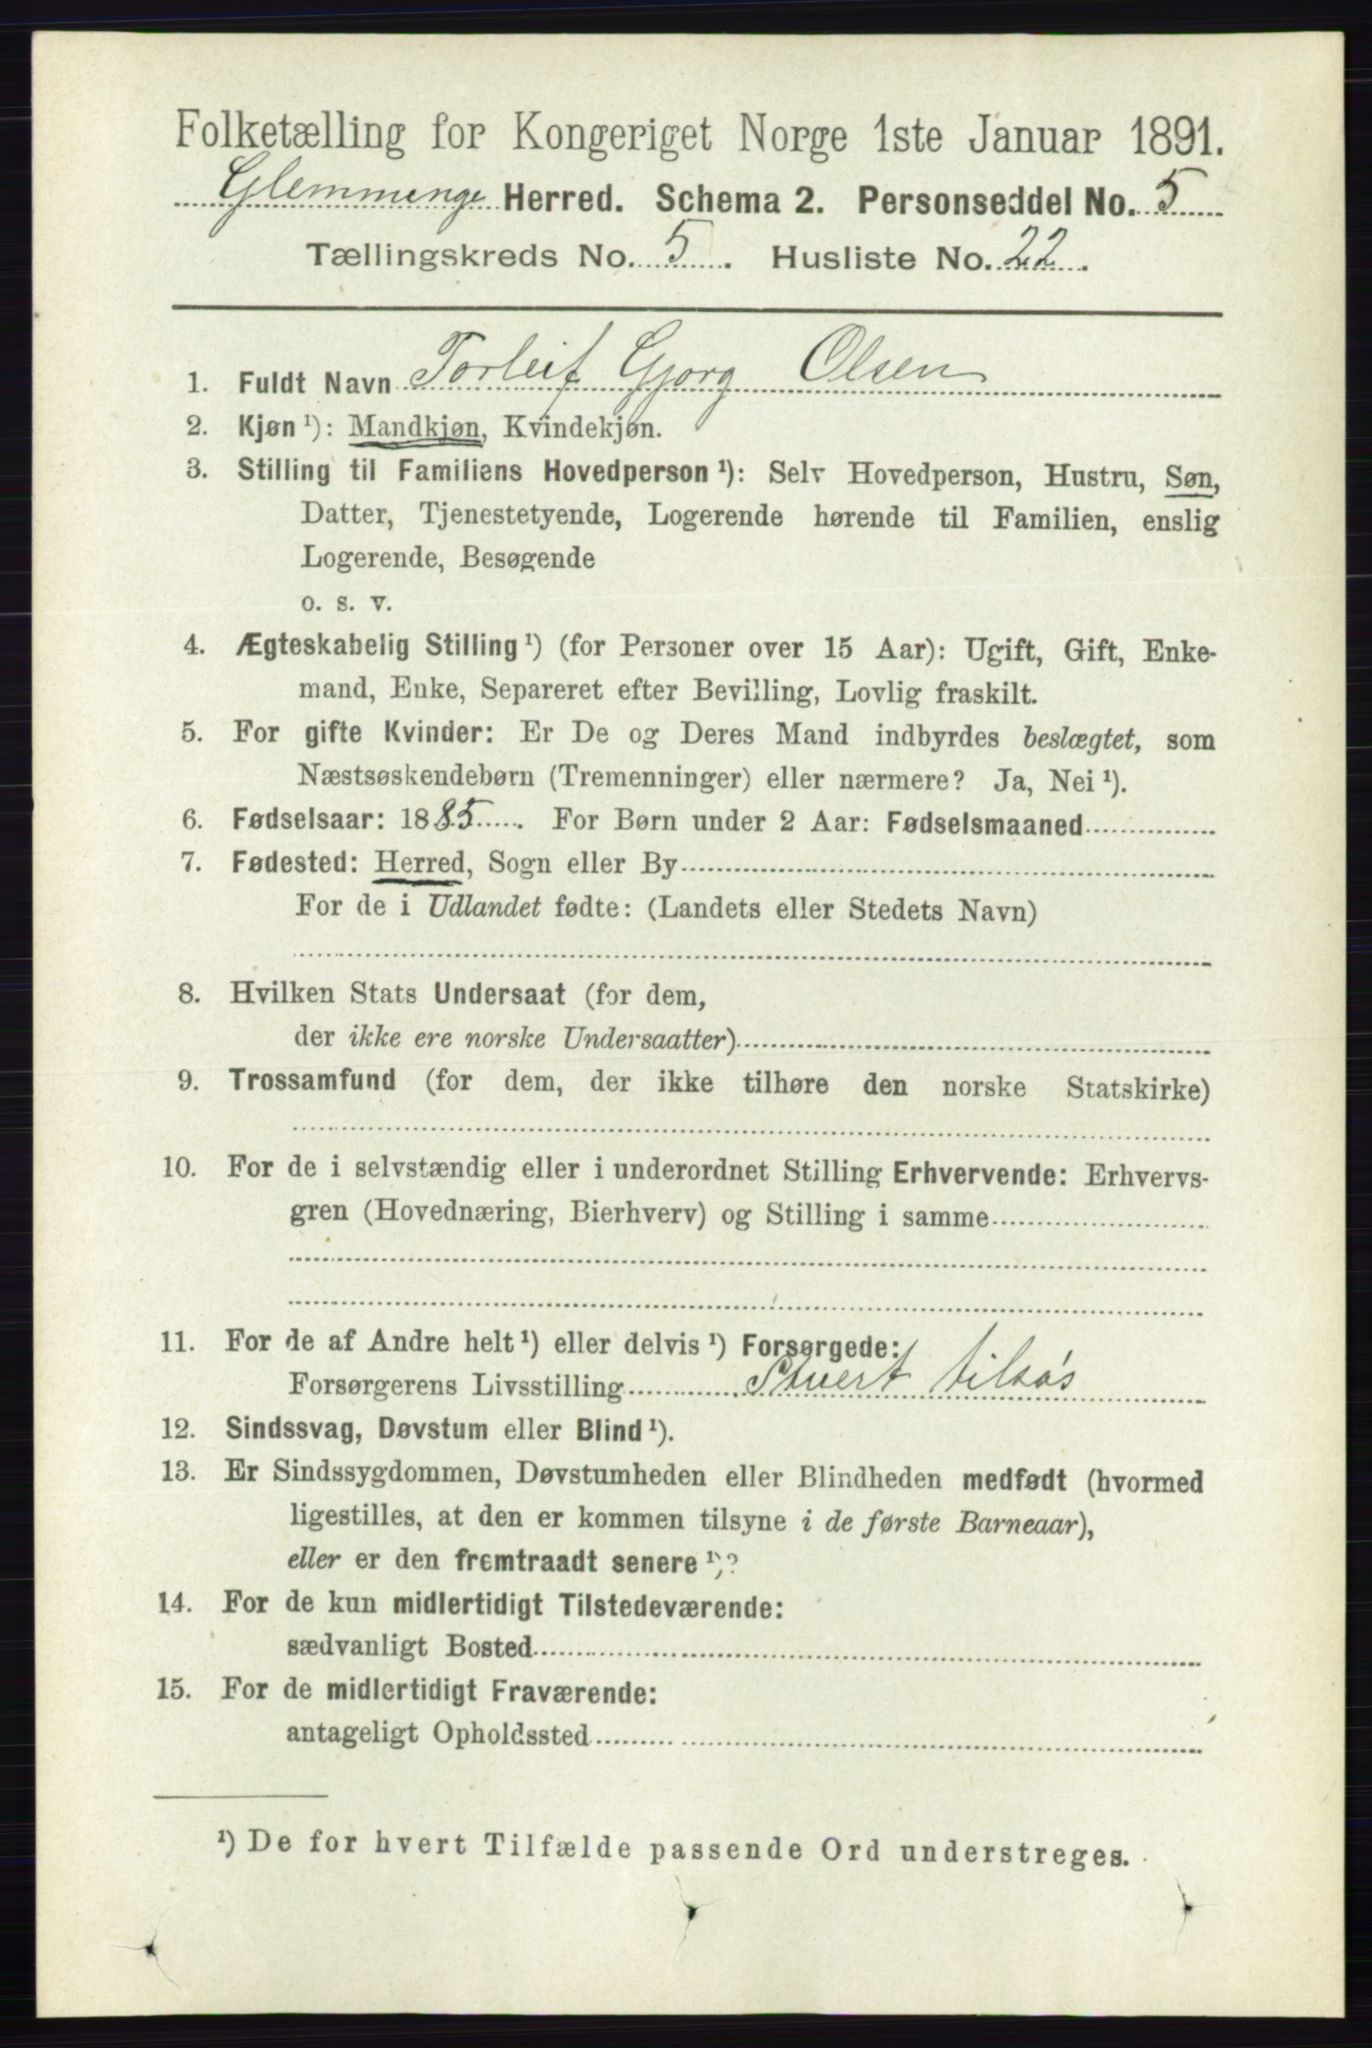 Folketælling for Kongeriget Norge 1ste Januar 1891.
Glemminge Herred. Schema 2. Personseddel No. 5
Tællingskreds No. 5. Husliste No. 22.
1. Fuldt Navn Torleif Gjorg Olsen
2. Kjøn ¹): Mandkjøn, Kvindekjøn.
3. Stilling til Familiens Hovedperson ¹): Selv Hovedperson, Hustru, Søn,
Datter, Tjenestetyende, Logerende hørende til Familien, enslig
Logerende, Besøgende
o. s. v.
4. Ægteskabelig Stilling ¹) (for Personer over 15 Aar): Ugift, Gift, Enke-
mand, Enke, Separeret efter Bevilling, Lovlig fraskilt.
5. For gifte Kvinder: Er De og Deres Mand indbyrdes beslægtet, som
Næstsøskendebørn (Tremenninger) eller nærmere? Ja, Nei ¹).
6. Fødselsaar: 1885. For Børn under 2 Aar: Fødselsmaaned
7. Fødested: Herred, Sogn eller By
For de i Udlandet fødte: (Landets eller Stedets Navn)
8. Hvilken Stats Undersaat (for dem,
der ikke ere norske Undersaatter)
9. Trossamfund (for dem, der ikke tilhøre den norske Statskirke)
10. For de i selvstændig eller i underordnet Stilling Erhvervende: Erhvervs-
gren (Hovednæring, Bierhverv) og Stilling i samme
11. For de af Andre helt ¹) eller delvis ¹) Forsørgede:
Forsørgerens Livsstilling tilsøs
12. Sindssvag, Døvstum eller Blind ¹).
13. Er Sindssygdommen, Døvstumheden eller Blindheden medfødt (hvormed
ligestilles, at den er kommen tilsyne i de første Barneaar),
eller er den fremtraadt senere ¹)?
14. For de kun midlertidigt Tilstedeværende:
sædvanligt Bosted
15. For de midlertidigt Fraværende:
antageligt Opholdssted
¹) De for hvert Tilfælde passende Ord understreges.